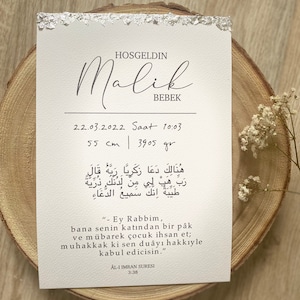 HOSGELDIN
Malik
BEBEK
22.03.2022 Saat 10:03
55 cm | 3905 gr
هُنَالِكَ دَعَا زَكَرِيَّا رَبَّهُ قَالَ
رَبِّ هَبْ لِي مِنْ لَدُنْكَ ذُرِّيَّةً
طَيِّبَةً إِنَّكَ سَمِيعُ الدُّعَاءِ
“- Ey Rabbim,
bana senin katından bir pâk
ve mübarek çocuk ihsan et;
muhakkak ki sen duâyı hakkıyle
kabul edicisin.”
ÂL-I IMRAN SURESI
3:38